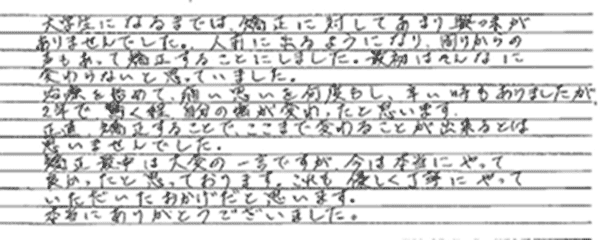 大学生になるまでは、矯正に対してあまり興味が
ありませんでした。人前に出るようになり、周りからの
声もあって矯正することにしました。最初はそんなに
変わらないと思っていました。
治療を始めて、痛い思いを何度もし、辛い時もありましたが、
2年で、驚く程、自分の歯が変わったと思います。
正直、矯正することで、ここまで変わることが出来るとは
思いませんでした。
矯正最中は大変の一言ですが、今は本当にやって
良かったと思っております。これも優しく丁寧にやって
いただいたおかげだと思います。
本当にありがとうございました。